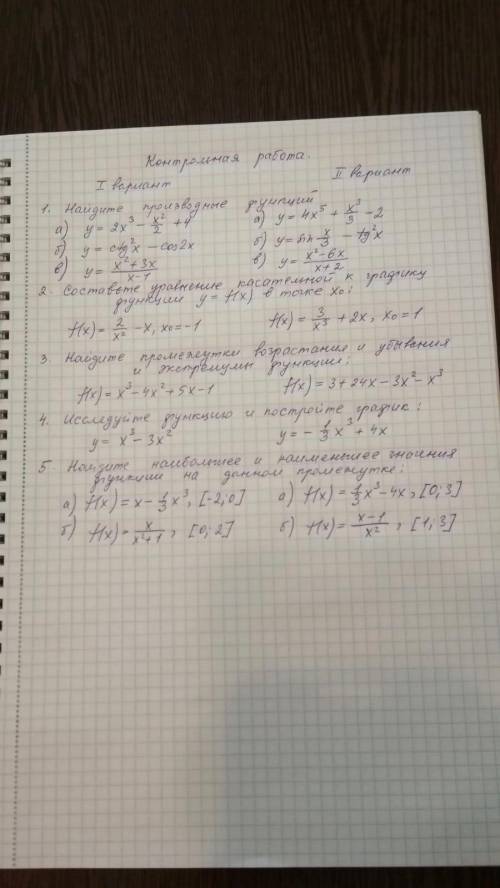 Контрольная работа.
I вариант II вариант
1. Найдите производные функций
а) y = 2x³ − x²/2 + 4 а) y = 4x⁵ + x³/3 − 2
б) y = ctg²x − cos2x б) y = sin x/3 − tg²x
в) y = (x² + 3x)/(x − 1) в) y = (x² − 6x)/(x + 2)
2. Составьте уравнение касательной к графику
функции y = f(x) в точке x₀:
f(x) = 2/x² − x, x₀ = −1 f(x) = 3/x³ + 2x, x₀ = 1
3. Найдите промежутки возрастания и убывания
и экстремумы функции:
f(x) = x³ − 4x² + 5x − 1 f(x) = 3 + 24x − 3x² − x³
4. Исследуйте функцию и постройте график:
y = x³ − 3x² y = − 1/3 x³ + 4x
5. Найдите наибольшее и наименьшее значения
функции на данном промежутке:
а) f(x) = x − 1/3 x³, [−2; 0] а) f(x) = 1/3 x³ − 4x, [0; 3]
б) f(x) = x/(x² + 1), [0; 2] б) f(x) = (x − 1)/x², [1; 3]